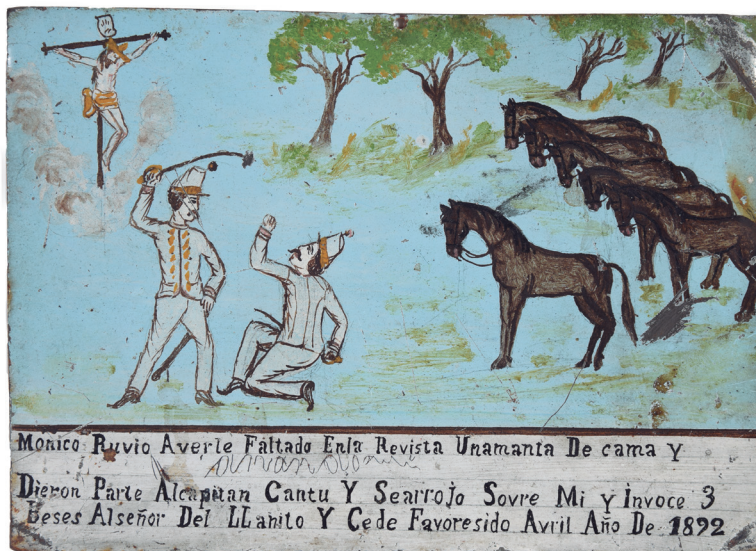 Monico Ruvio Averle Faltado Enla Revista Unamanta De cama Y
Dieron Parte Alcapitan Cantu Y Searrojo Sovre Mi y invoce 3
Beses Alseñor Del LLanito Y Cede Favoresido Avril Año De 1892